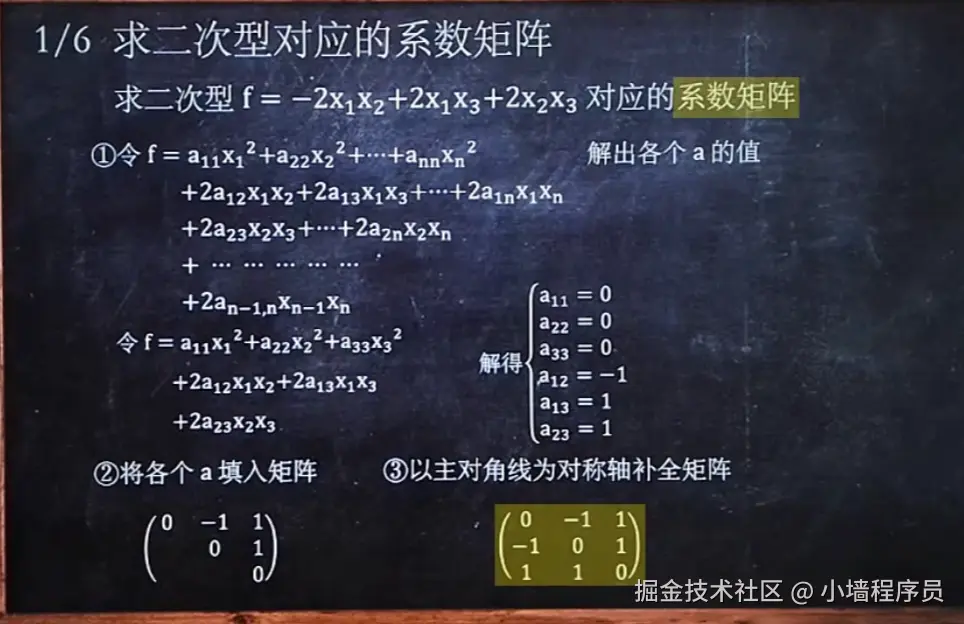 1/6 求二次型对应的系数矩阵
求二次型 f = −2x₁x₂+2x₁x₃+2x₂x₃ 对应的系数矩阵
①令 f = a₁₁x₁²+a₂₂x₂²+⋯+aₙₙxₙ² 解出各个 a 的值
+2a₁₂x₁x₂+2a₁₃x₁x₃+⋯+2a₁ₙx₁xₙ
+2a₂₃x₂x₃+⋯+2a₂ₙx₂xₙ
+ ⋯ ⋯ ⋯ ⋯ ⋯
+2aₙ₋₁,ₙxₙ₋₁xₙ
令 f = a₁₁x₁²+a₂₂x₂²+a₃₃x₃²
+2a₁₂x₁x₂+2a₁₃x₁x₃
+2a₂₃x₂x₃
解得
a₁₁ = 0
a₂₂ = 0
a₃₃ = 0
a₁₂ = −1
a₁₃ = 1
a₂₃ = 1
②将各个 a 填入矩阵 ③以主对角线为对称轴补全矩阵
0 −1 1
0 1
0
0 −1 1
−1 0 1
1 1 0
掘金技术社区 @ 小墙程序员